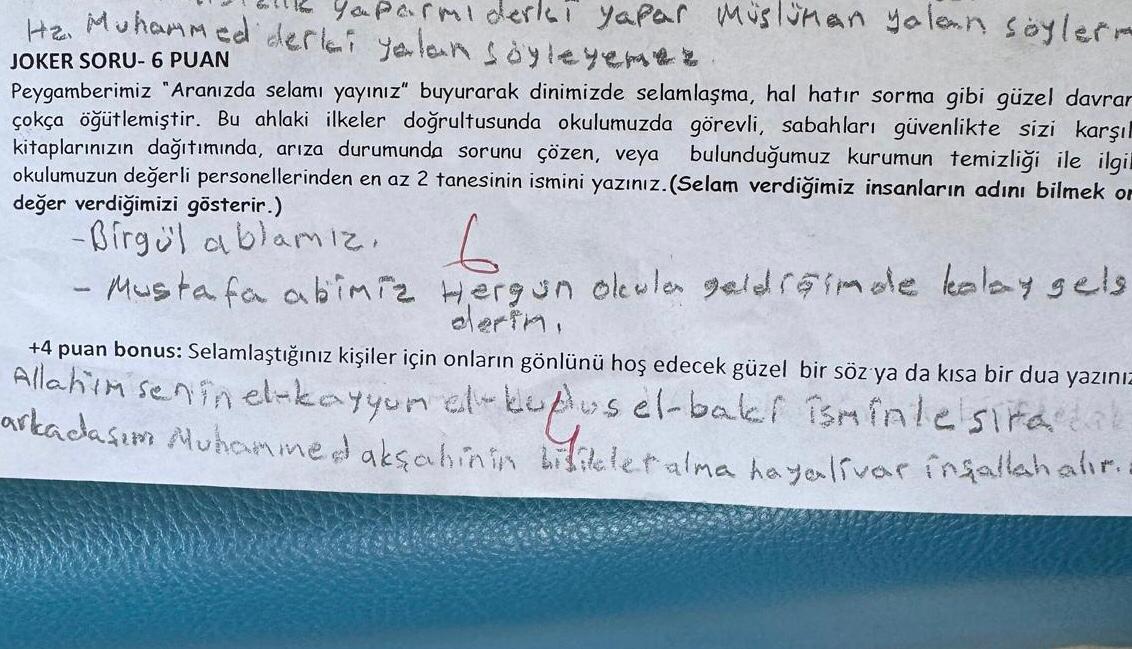 yaparmı derki yapar Müslüman yalan söylerm
Hz. Muhammed derki yalan söyleyemez.
JOKER SORU- 6 PUAN
Peygamberimiz "Aranızda selamı yayınız" buyurarak dinimizde selamlaşma, hal hatır sorma gibi güzel davran
çokça öğütlemiştir. Bu ahlaki ilkeler doğrultusunda okulumuzda görevli, sabahları güvenlikte sizi karşıl
kitaplarınızın dağıtımında, arıza durumunda sorunu çözen, veya bulunduğumuz kurumun temizliği ile ilgil
okulumuzun değerli personellerinden en az 2 tanesinin ismini yazınız.(Selam verdiğimiz insanların adını bilmek on
değer verdiğimizi gösterir.)
-Birgül ablamız.
6
- Mustafa abimiz Hergün okula geldiğimde kolay gels
derim.
+4 puan bonus: Selamlaştığınız kişiler için onların gönlünü hoş edecek güzel bir söz ya da kısa bir dua yazınız
Allahım senin el-kayyum el-kudus el-baki isminle sıra
4
arkadaşım Muhammed akşahinin bisiklet alma hayali var inşallah alır.